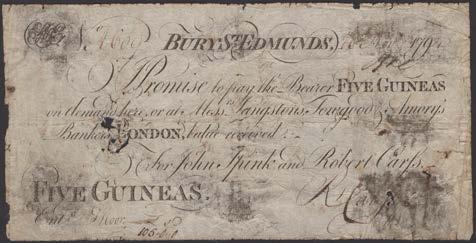 BURY St. EDMUNDS,
I Promise to pay the Bearer FIVE GUINEAS
on demand here, or at Messrs. Langstons, Towgood & Amory's
Bankers, LONDON, value received
For John Spink and Robert Carss.
FIVE GUINEAS.